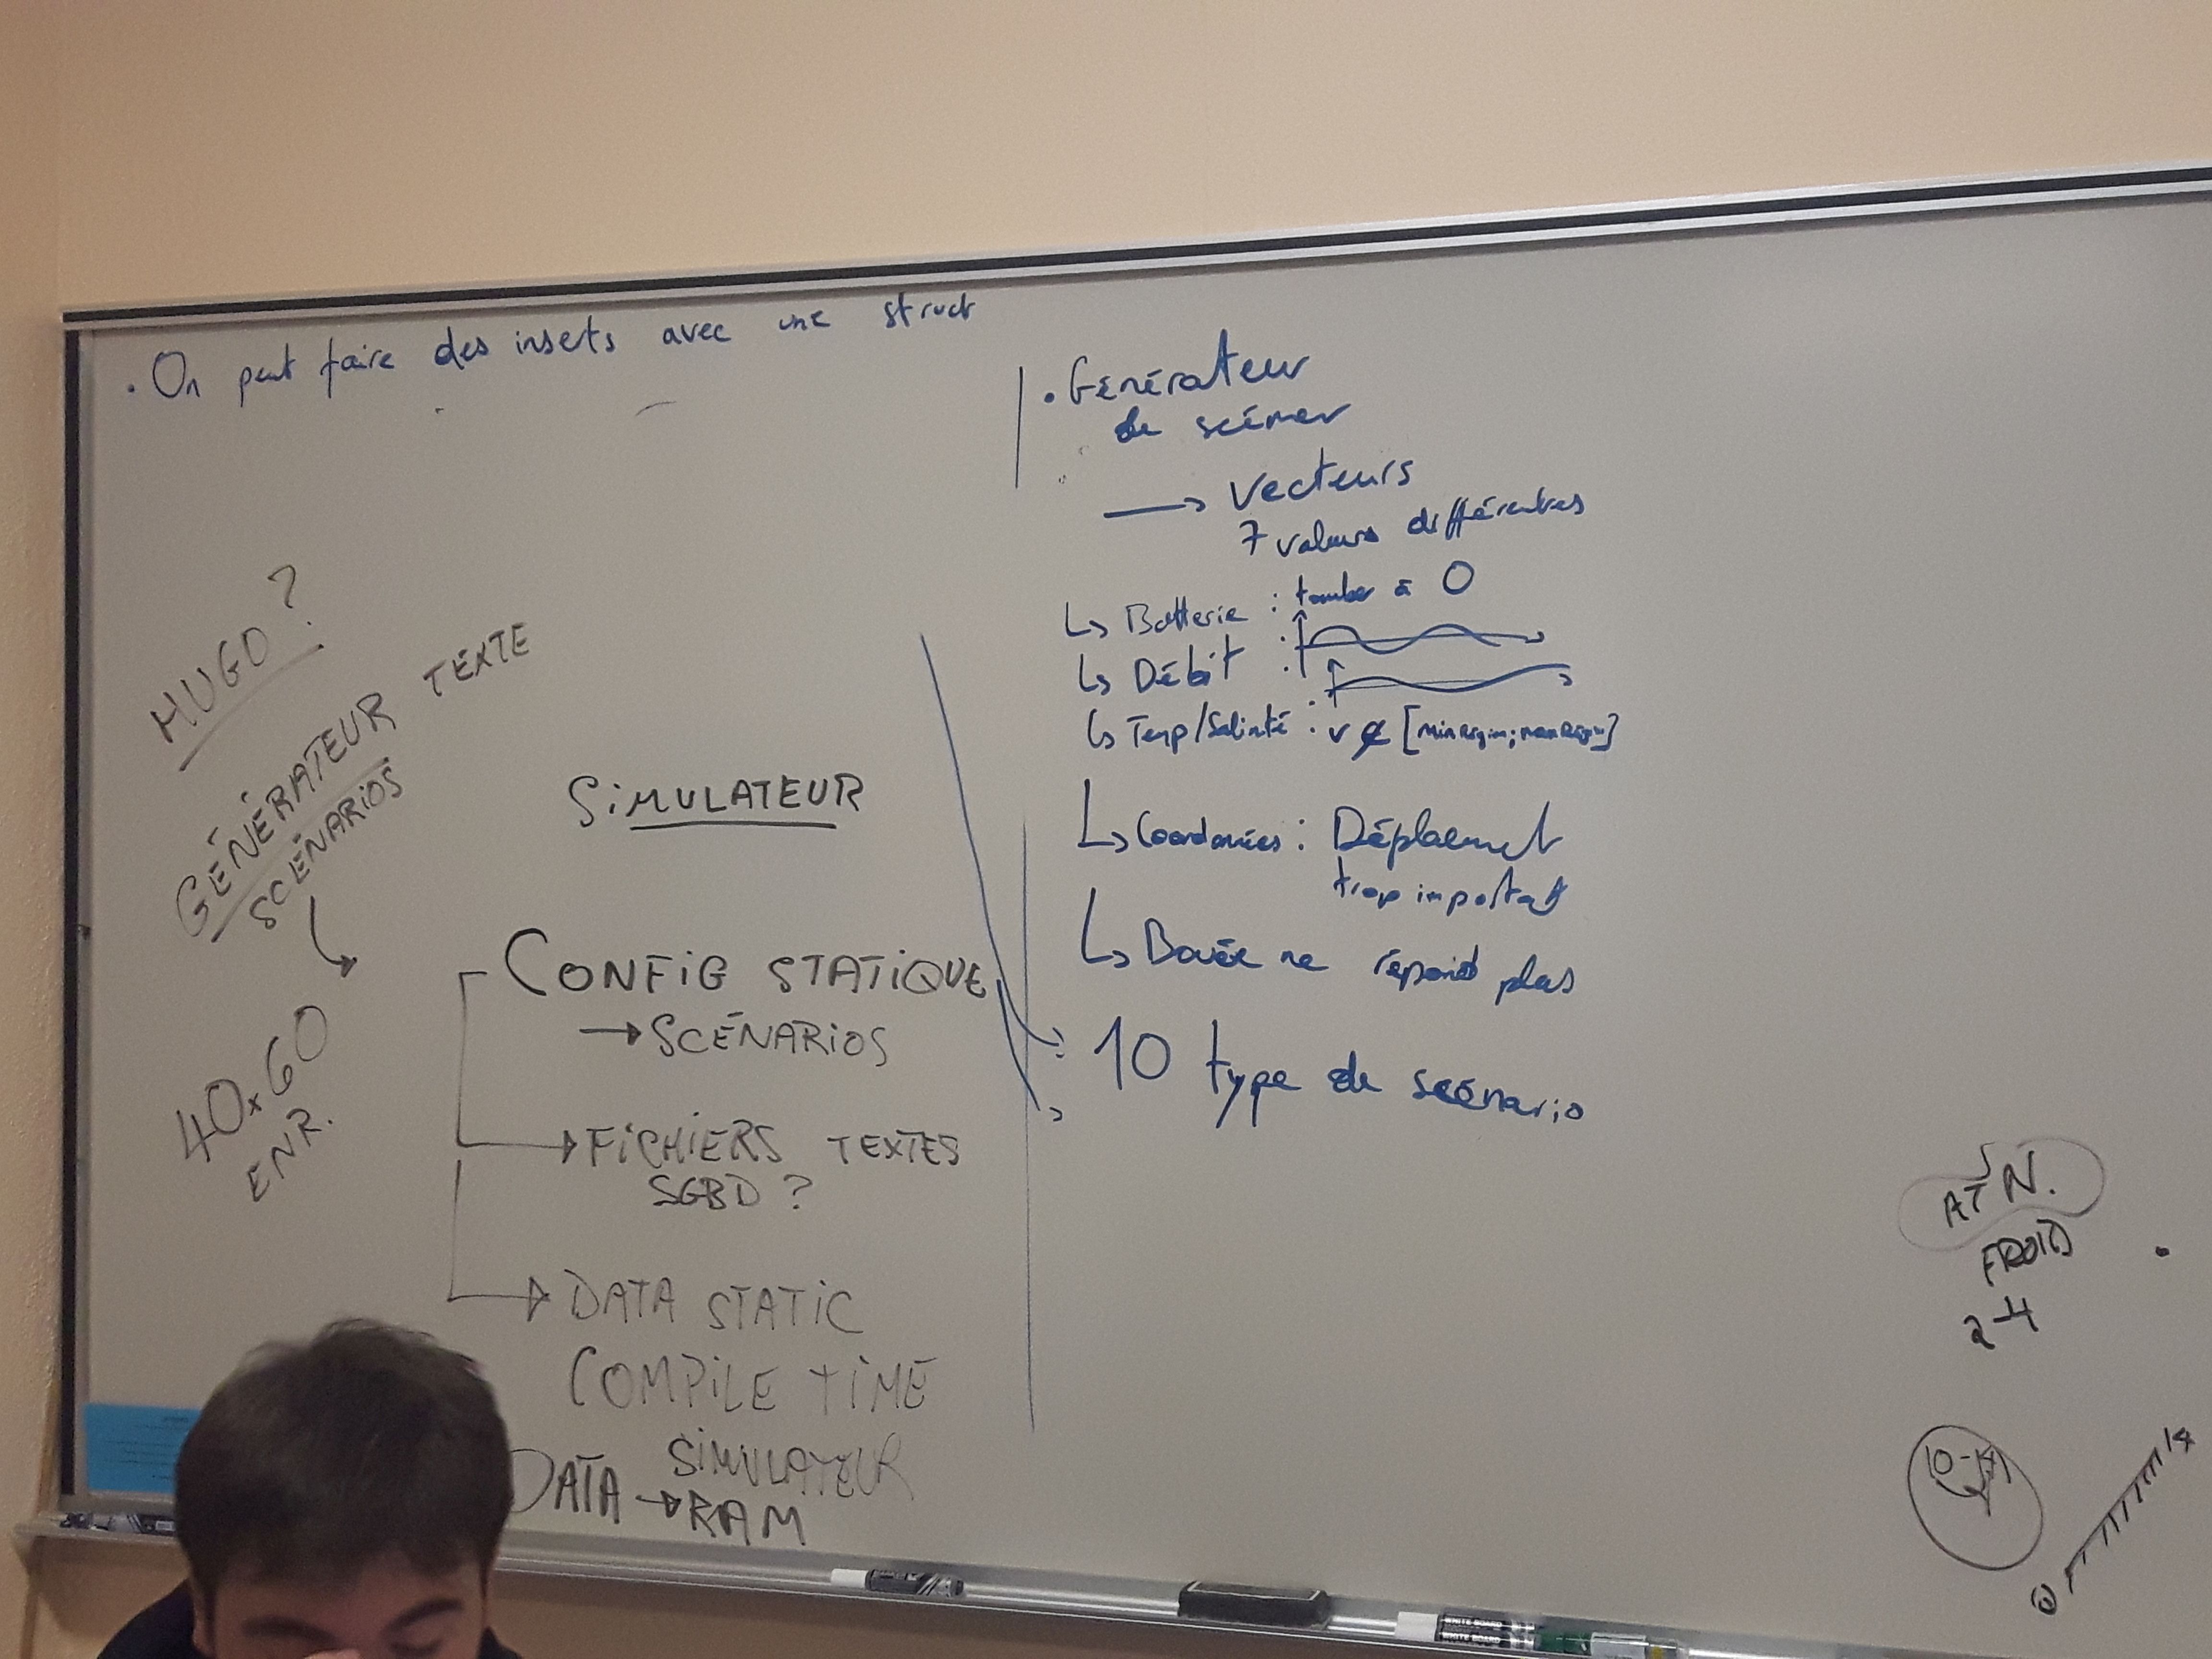 . On peut faire des inserts avec une struct
HUGO ?
GÉNÉRATEUR TEXTE
SCÉNARIOS
40x60
ENR.
SiMULATEUR
CONFiG STATiQUE
→ SCÉNARiOS
→ FiCHiERS TEXTES
SGBD ?
→ DATA STATiC
COMPiLE TiME
SiMULATEUR
DATA → RAM
. Générateur
de
→ Vecteurs
7 valeurs différentes
↳ Batterie : tomber à 0
↳ Débit :
↳ Temp/Salinité : v ∉ [minRegion; maxRegion]
↳ Coordonnées : Déplacement
trop important
↳ Bouée ne répond plus
10 type de scénario
AT N.
FROID
2-4
10-14
0
14
WHITE BOARD
WHITE BOARD